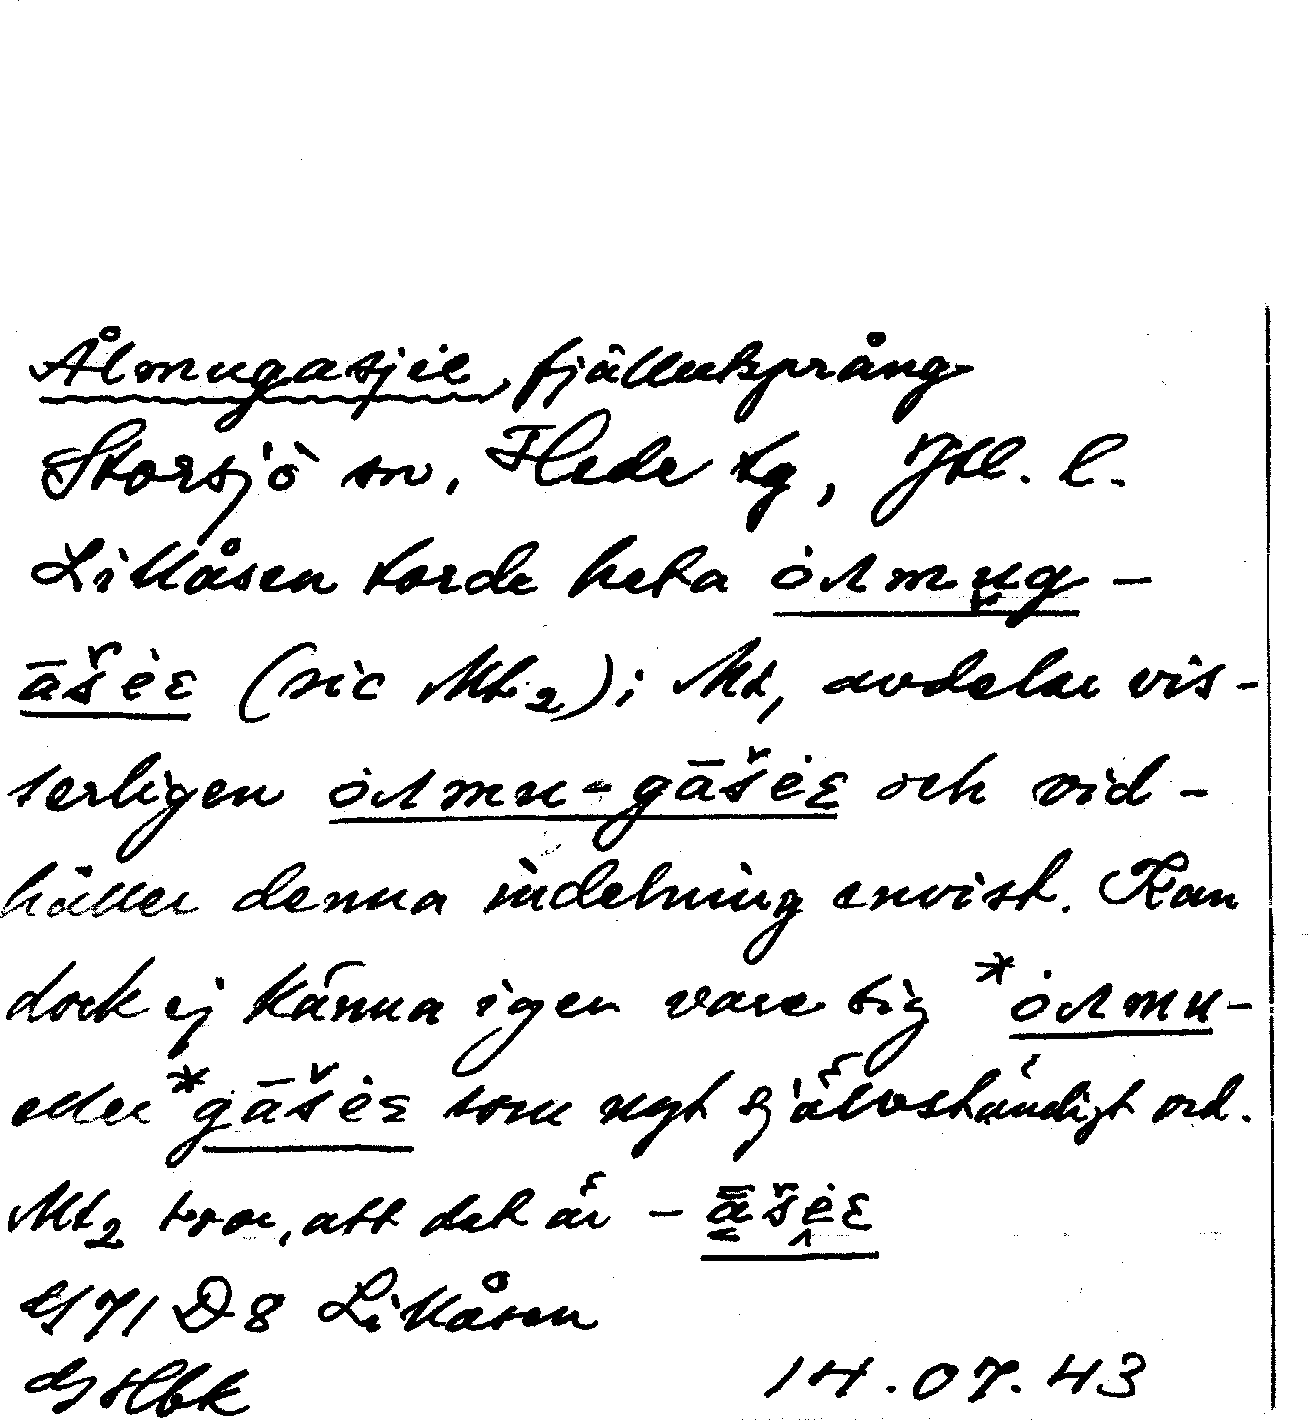 Ålmugasjie, fjällutsprång
Storsjö sn, Hede tg, Jtl. l.
Likåsen torde heta ȯʌmug –
āšėɛ (sic Mt₂); Mt, avdelar vis-
serligen ȯʌmu-gāšėɛ och vid-
håller denna indelning envist. Kan
dock ej känna igen vare sig *ȯʌmu-
eller *gāšėɛ som ngt självständigt ord.
Mt₂ tror, att det är – āšėɛ
G 71 D 8 Likåsen
14.07.43